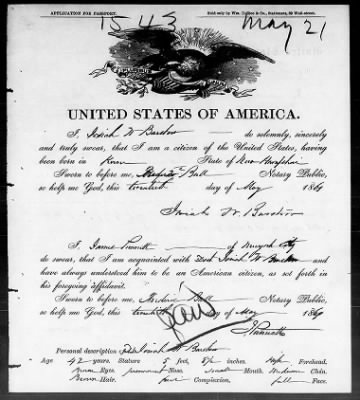 APPLICATION FOR PASSPORT.
1543
May 21
UNITED STATES OF AMERICA.
I, Josiah W Barstow do solemnly, sincerely
and truly swear, that I am a citizen of the United States, having
been born in State of New Hampshire
Sworn to before me, Notary Public,
so help me God, this twentieth day of May 1869
Josiah W. Barstow
I, of New York City
do swear, that I am acquainted with Josiah W Barstow and
have always understood him to be an American citizen, as set forth in
his foregoing affidavit.
Sworn to before me, Notary Public,
so help me God, this twentieth day of May 1869
Paid
Personal description Josiah W Barstow
Age 42 years. Stature 5 feet, inches, high Forehead.
Eyes, prominent Nose, small Mouth, Medium Chin,
Brown Hair, Complexion, full Face.